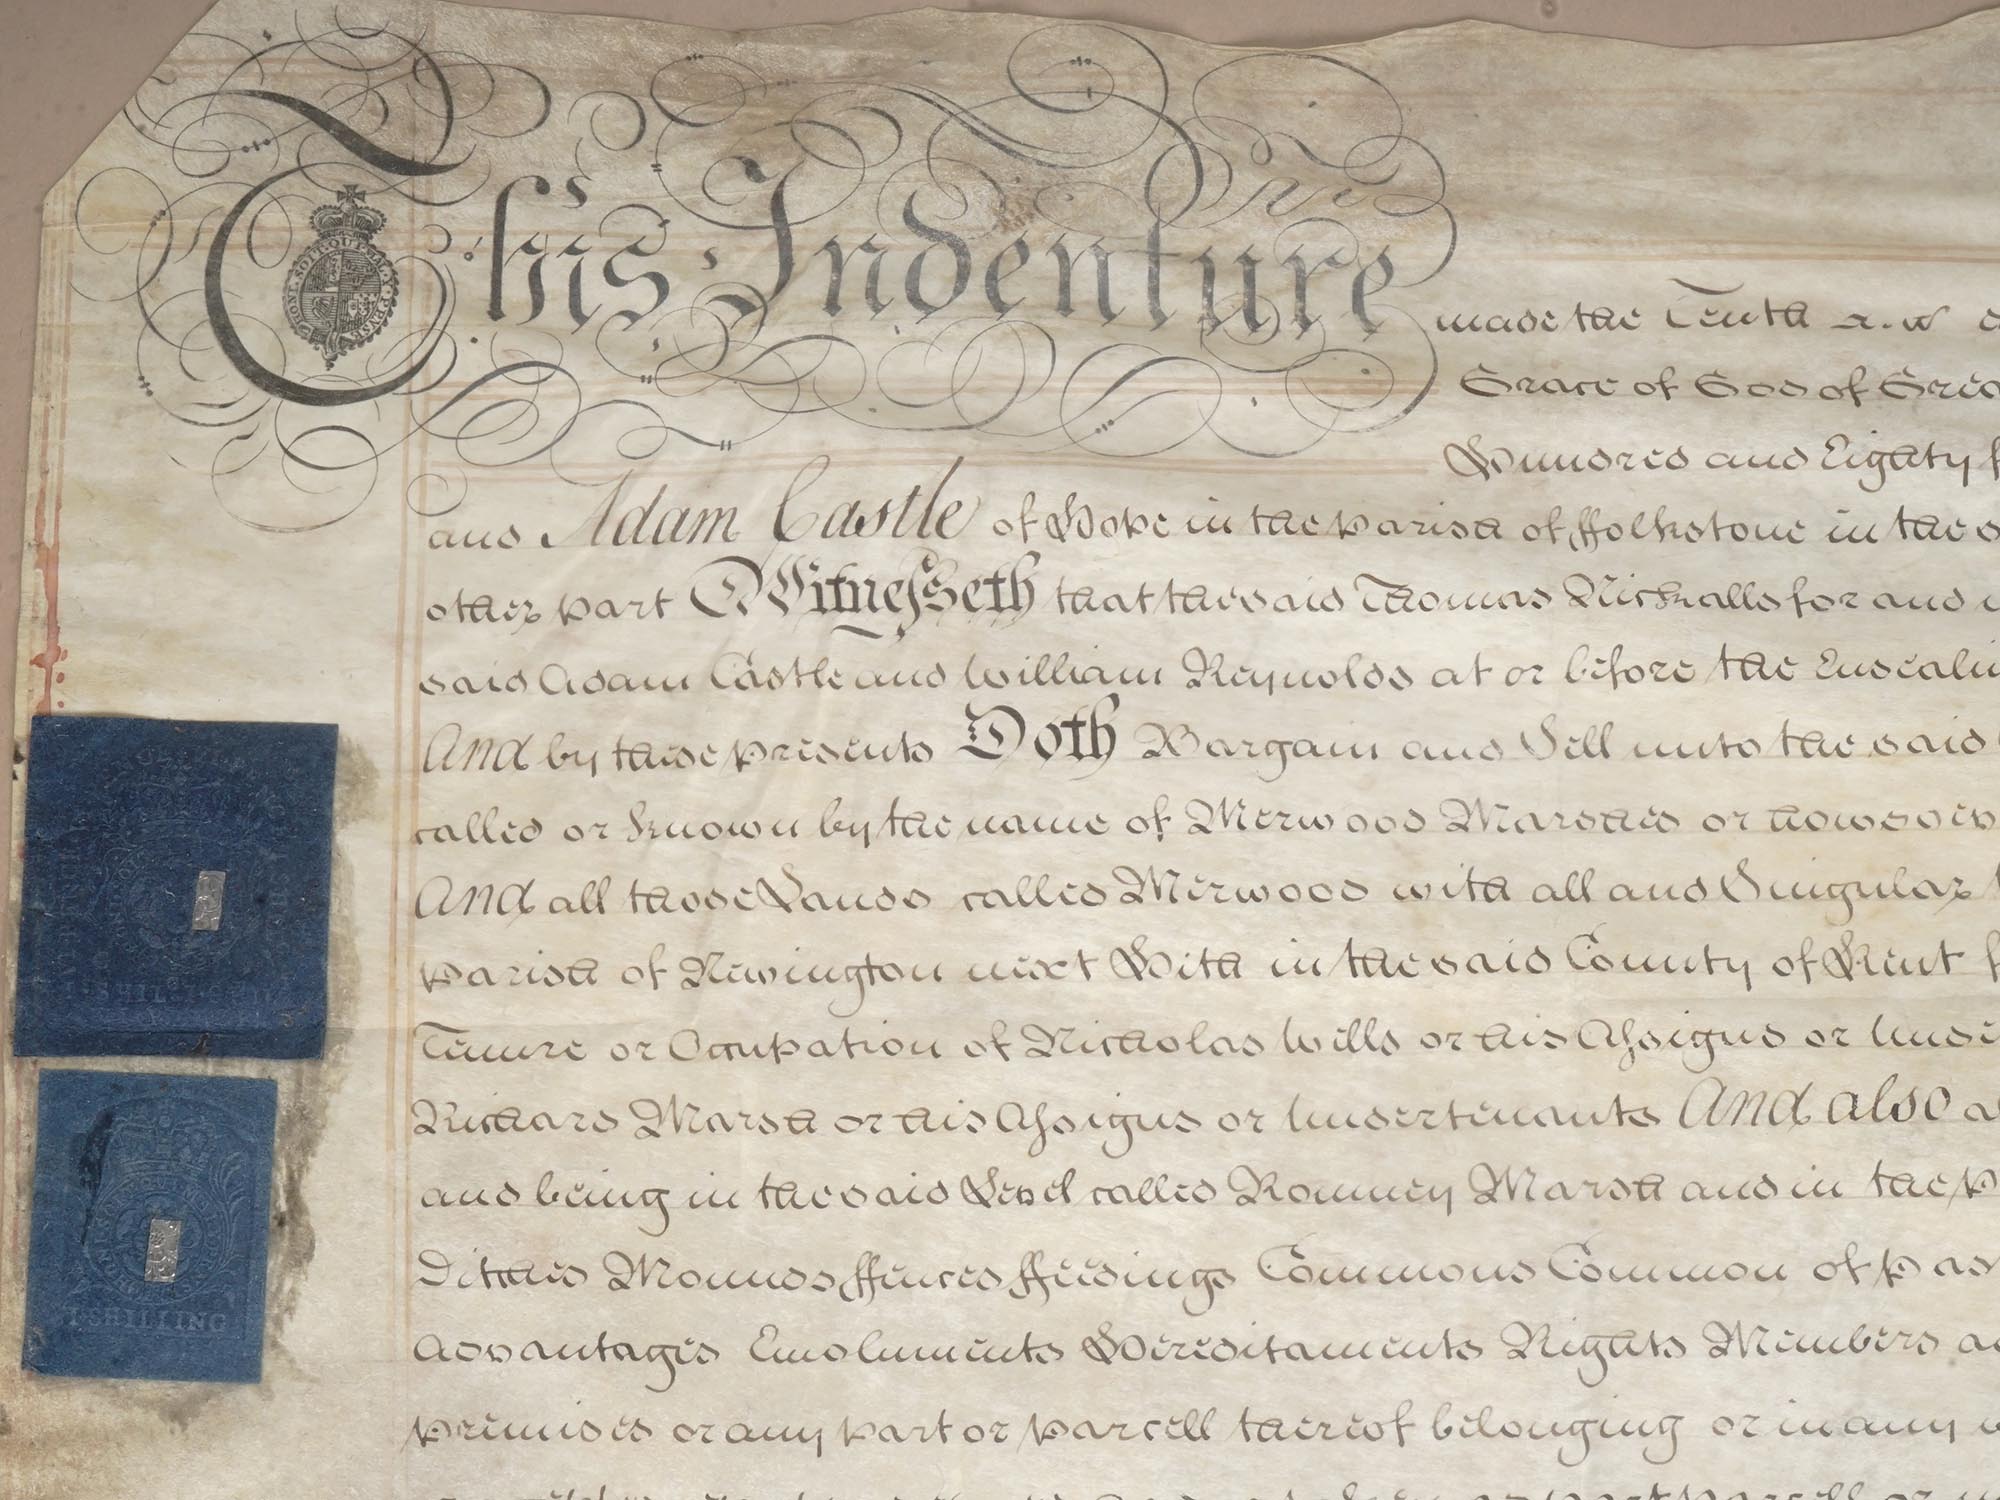 This Indenture made the Tenth
Grace of God of Grea
Hundred and Eighty f
and Adam Castle of Hope in the parish of ffolkstone in the
other part Witnesseth that the said Thomas Nickalls for and
said Adam Castle and William Reynolds at or before the Ensealin
And by these presents Doth Bargain and Sell unto the said
called or known by the name of Merwood Marshes or howsoev
And all those Lands called Merwood with all and Singular
parish of Newington next Hith in the said County of Kent
Tenure or Occupation of Nicholas Wills or his Assigns or Unde
Richard Marsh or his Assigns or Undertenants And also a
and being in the said Level called Romney Marsh and in the P
Ditches Mounds ffences ffeedings Commons Common of Pas
Advantages Emoluments Hereditaments Rights Members a
premises or any part or parcell thereof belonging or in any
HONI SOIT QUI MAL Y PENSE
I SHILLING